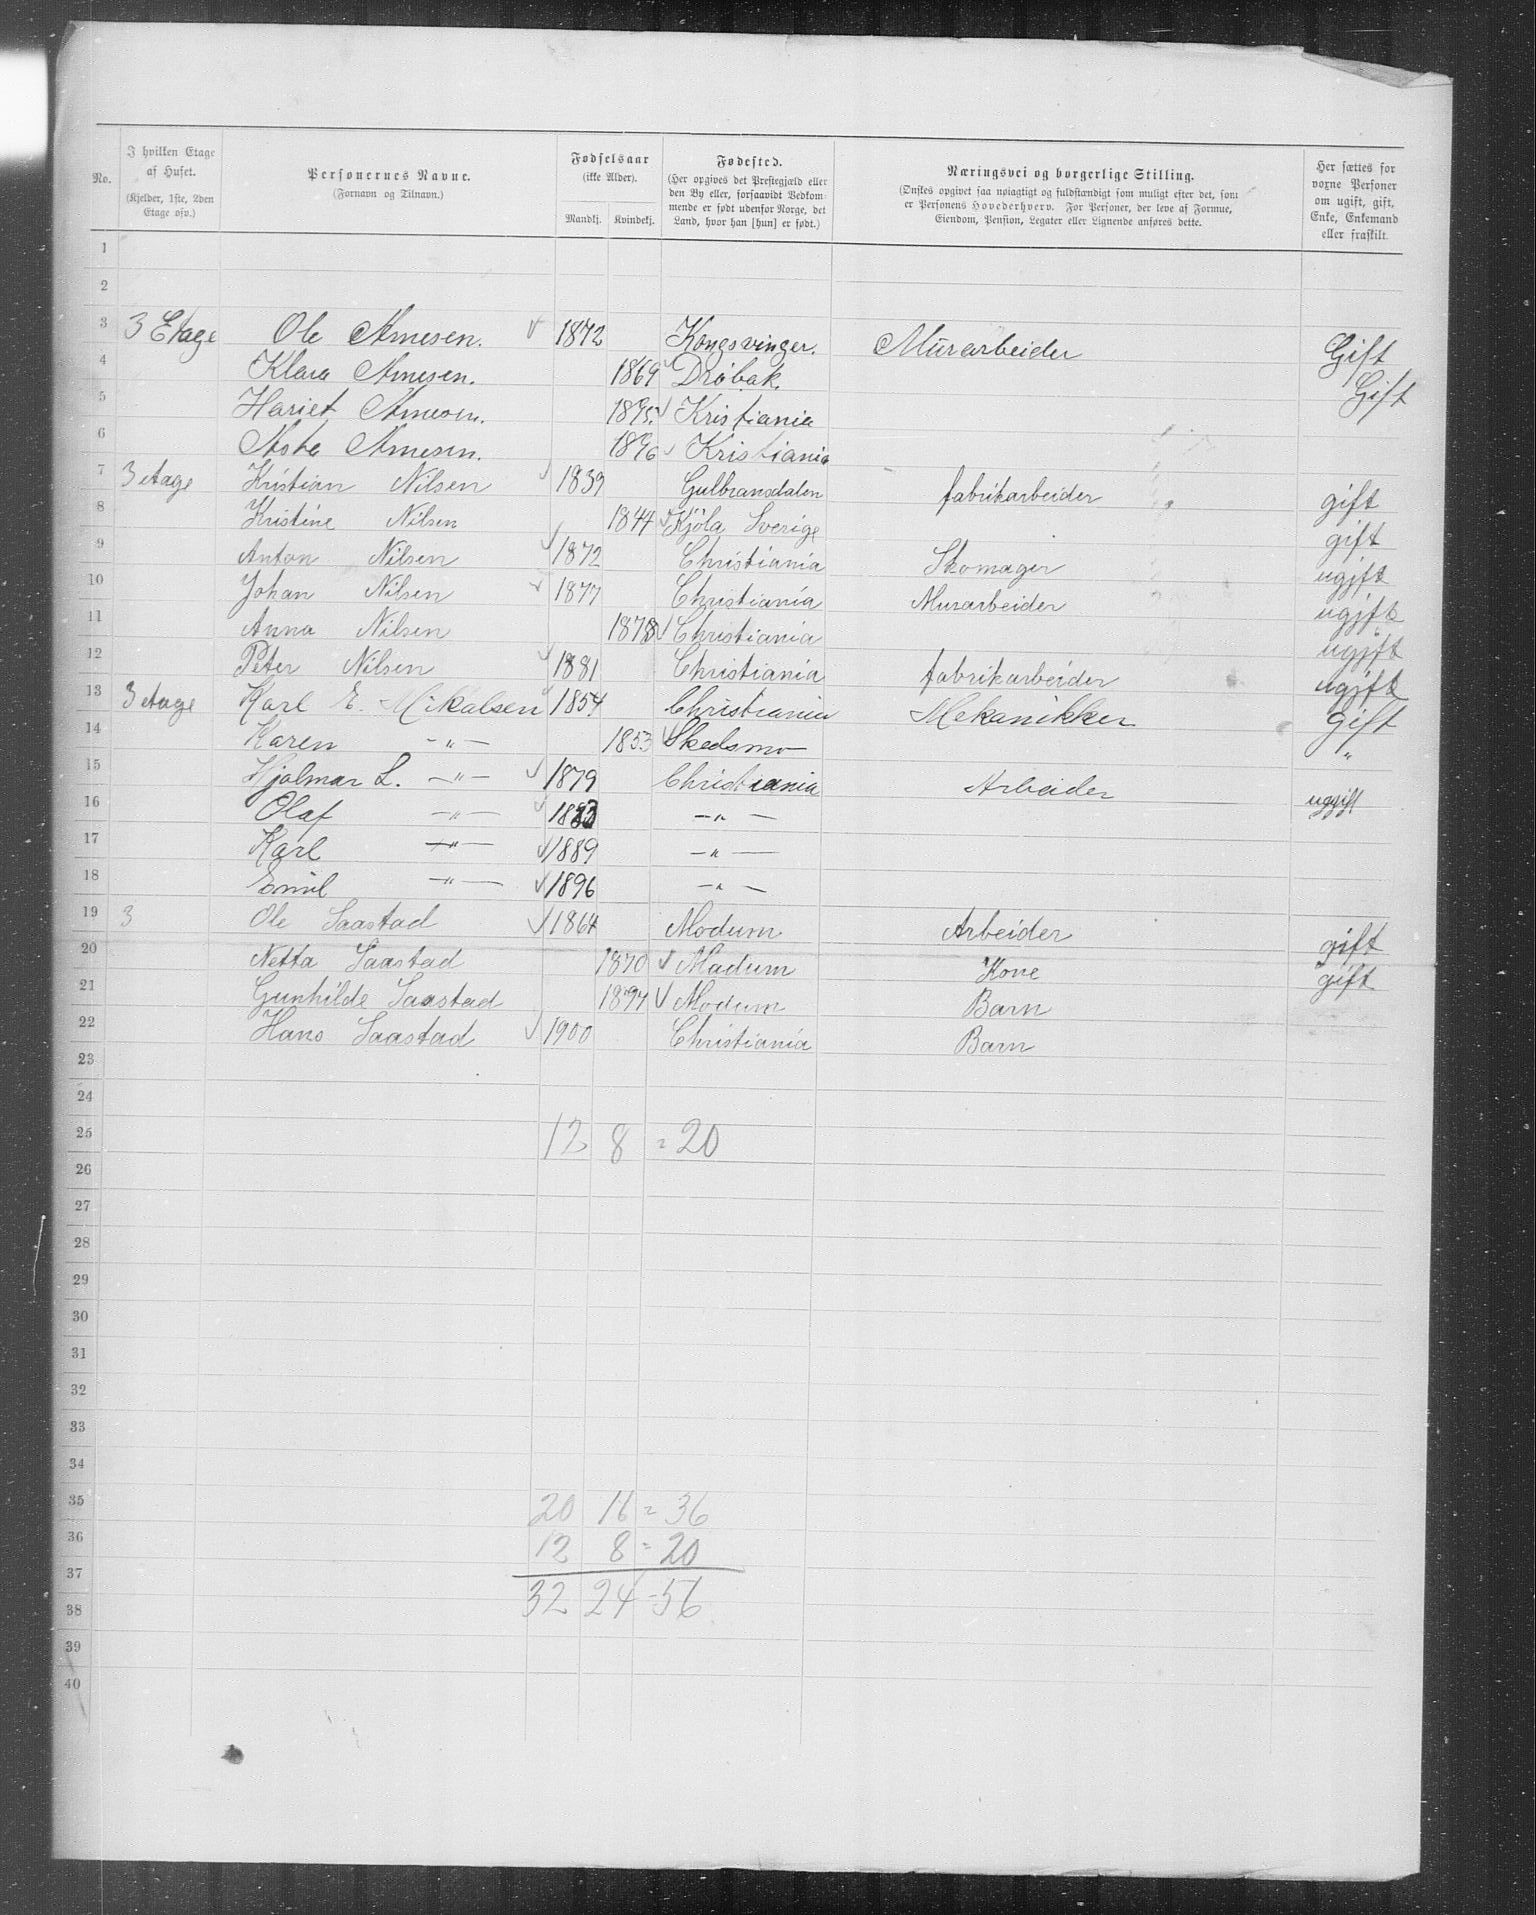 No.
I hvilken Etage af Huset.
(Kjelder, 1ste, 2den Etage osv.)
Personernes Navne.
(Fornavn og Tilnavn.)
Fødselsaar
(ikke Alder).
Mandkj. Kvindekj.
Fødested.
(Her opgives det Prestegjæld eller
den By eller, forsaavidt Vedkom-
mende er født udenfor Norge, det
Land, hvor han [hun] er født.)
Næringsvei og borgerlige Stilling.
(Ønskes opgivet saa nøiagtigt og fuldstændigt som muligt efter det, som
er Personens Hovederhverv. For Personer, der leve af Formue,
Eiendom, Pension, Legater eller Lignende anføres dette.
Her sættes for
voxne Personer
om ugift, gift,
Enke, Enkemand
eller fraskilt.
1
2
3 3 Etage Ole Arnesen. 1872 Kongsvinger. Murarbeider Gift
4 Klara Arnesen. 1869 Drøbak. Gift
5 Hariet Arnesen. 1895. Kristiania
6 Arnesen. 1896 Kristiania
7 3 etage Kristian Nilsen 1839 Gulbransdalen fabrikarbeider gift
8 Kristine Nilsen 1844 Kjöla Sverige gift
9 Anton Nilsen 1872 Christiania Skomager ugift
10 Johan Nilsen 1877 Christiania Murarbeider ugift
11 Anna Nilsen 1878 Christiania ugift
12 Peter Nilsen 1881 Christiania fabrikarbeider ugift
13 3 etage Karl E. Mikalsen 1854 Christiania Mekanikker gift
14 Karen —"— 1853 Skedsmo "
15 Hjalmar L. —"— 1879 Christiania Arbeider uggift
16 Olaf —"— 1883 —"—
17 Karl —"— 1889 —"—
18 Emil —"— 1896 —"—
19 3 Ole Saastad 1864 Modum Arbeider gift
20 Netta Saastad 1870 Modum Kone gift
21 Gunhilde Saastad 1897 Modum Barn
22 Hans Saastad 1900 Christiania Barn
23
24
25 12 8 = 20
26
27
28
29
30
31
32
33
34
35 20 16 = 36
36 12 8 = 20
37
38 32 24 - 56
39
40